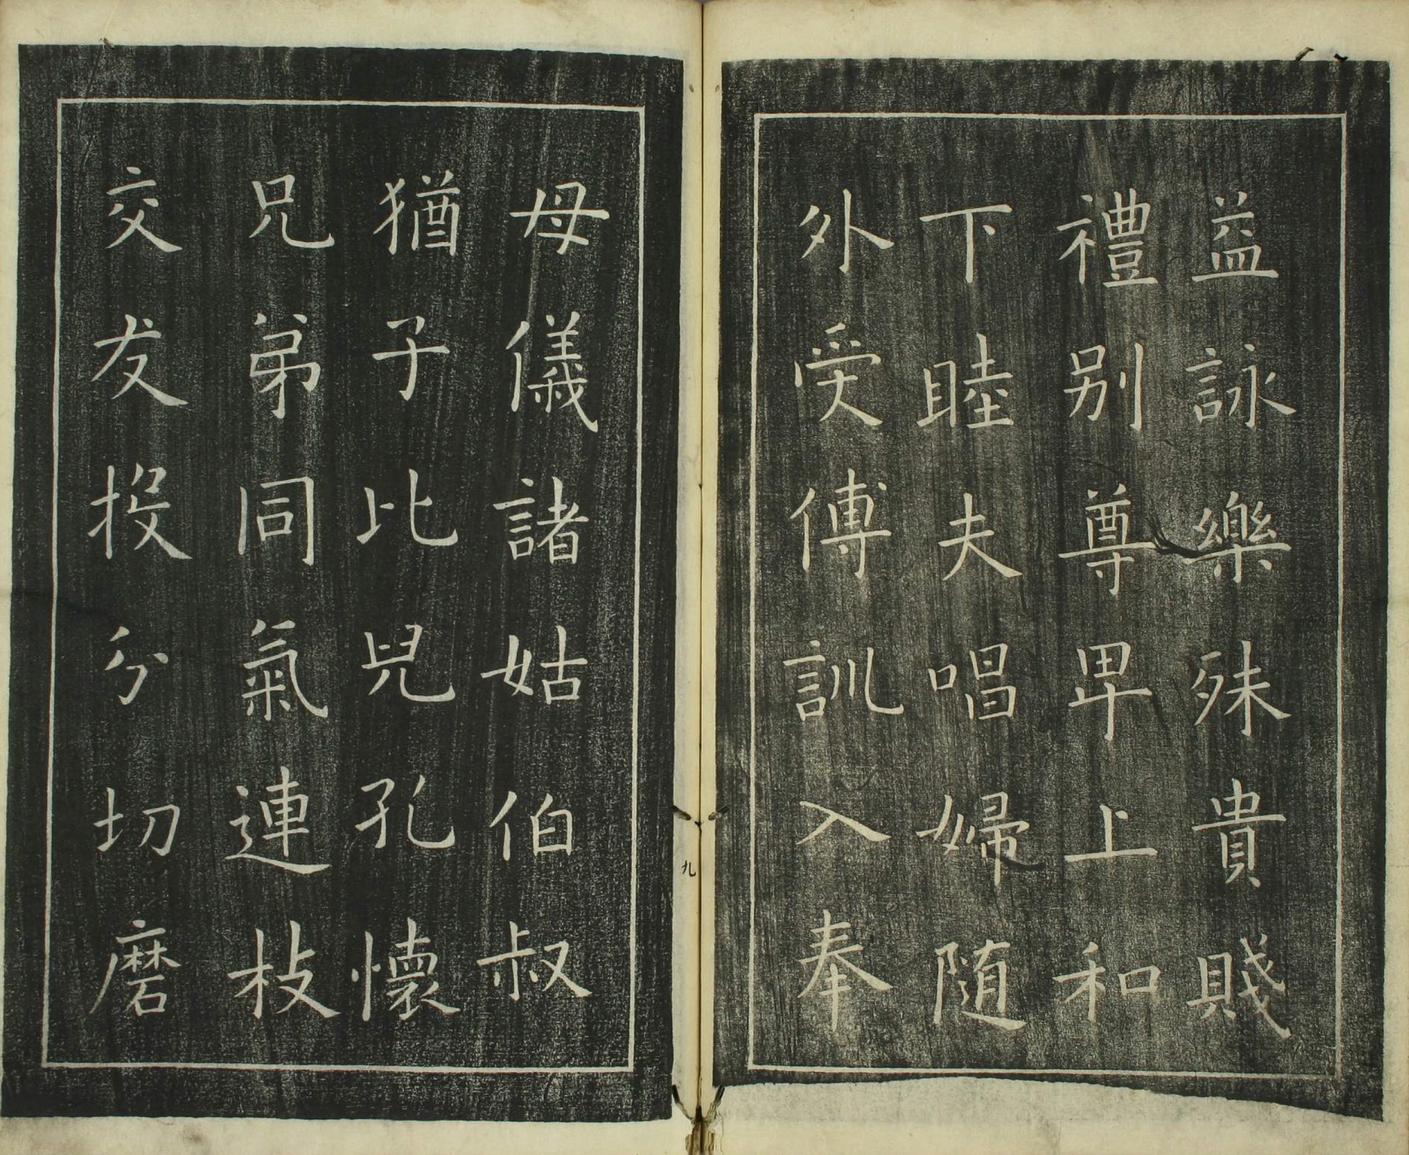 益詠樂殊貴賤
禮别尊卑上和
下睦夫唱婦随
外受傅訓入奉
母儀諸姑伯叔
猶子比兒孔懷
兄弟同氣連枝
交友投分切磨
九